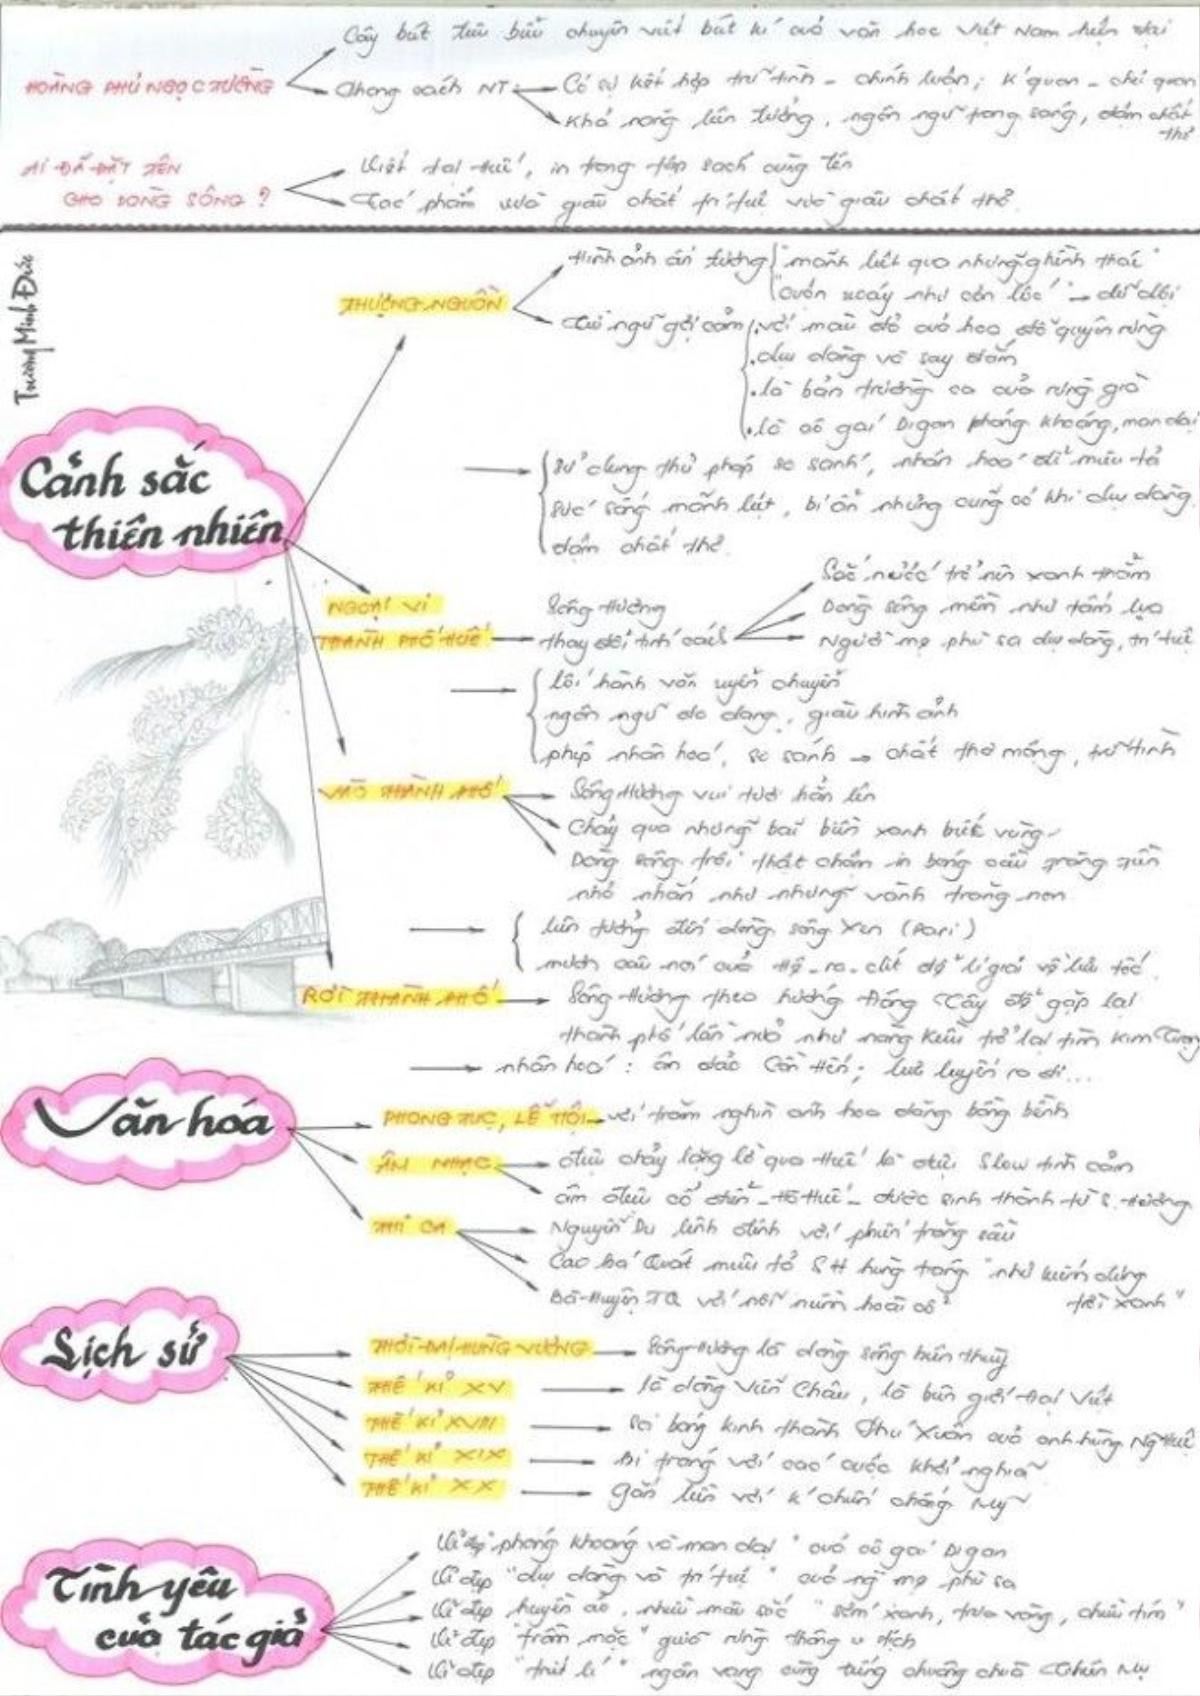 Cây bút tiêu biểu chuyên viết bút kí của văn học Việt Nam hiện đại
HOÀNG PHỦ NGỌC TƯỜNG
Phong cách NT
Có sự kết hợp trữ tình - chính luận; k' quan - chủ quan
Khả năng liên tưởng, ngôn ngữ trong sáng, đậm chất thơ
AI ĐÃ ĐẶT TÊN
CHO DÒNG SÔNG ?
Viết tại Huế, in trong tập sách cùng tên
Tác phẩm vừa giàu chất trí tuệ vừa giàu chất thơ.
Trương Minh Đức
THƯỢNG NGUỒN
Hình ảnh ấn tượng
"mãnh liệt qua những ghềnh thác"
"cuộn xoáy như cơn lốc" → dữ dội
Từ ngữ gợi cảm
. với màu đỏ của hoa đỗ quyên rừng
. dịu dàng và say đắm
. là bản trường ca của rừng già
. là cô gái Digan phóng khoáng, man dại
Cảnh sắc
thiên nhiên
Sử dụng thủ pháp so sánh, nhân hoá để miêu tả
sức sống mãnh liệt, bí ẩn nhưng cũng có khi dịu dàng
đậm chất thơ.
NGOẠI VI
THÀNH PHỐ HUẾ
Sông Hương
thay đổi tính cách
Sắc nước trở nên xanh thẳm
Dòng sông mềm như tấm lụa
Người mẹ phù sa dịu dàng, trí tuệ
lối hành văn uyển chuyển
ngôn ngữ đa dạng, giàu hình ảnh
phép nhân hoá, so sánh → chất thơ mộng, trữ tình
VÀO THÀNH PHỐ
Sông Hương vui tươi hẳn lên
Chảy qua những bãi biền xanh biếc vùng
Dòng sông trôi thật chậm in bóng cầu Tràng Tiền
nhỏ nhắn như những vành trăng non
liên tưởng đến dòng sông Xen (Pari)
mượn câu nói của Hê-ra-clit để lí giải về lưu tốc
RỜI THÀNH PHỐ
Sông Hương theo hướng Đông Tây để gặp lại
thành phố lần nữa như nàng Kiều trở lại tìm Kim Trọng
nhân hoá : Cồn Hến; lưu luyến ra đi...
Văn hóa
PHONG TỤC, LỄ HỘI
với trăm nghìn ánh hoa đăng bồng bềnh
ÂM NHẠC
điệu chảy lặng lờ qua Huế là điệu Slow tình cảm
âm điệu cổ điển - Huế - được sinh thành từ S. Hương
THI CA
Nguyễn Du lênh đênh với phiến trăng sầu
Cao Bá Quát miêu tả SH hùng tráng "như kiếm dựng
trời xanh"
Bà Huyện TQ với nỗi niềm hoài cổ
Lịch sử
THỜI ĐẠI HÙNG VƯƠNG
Sông Hương là dòng sông biên thuỳ
THẾ KỈ XV
là dòng Viễn Châu, là biên giới Đại Việt
THẾ KỈ XVIII
soi bóng kinh thành Phú Xuân của anh hùng Ng Huệ
THẾ KỈ XIX
Bi tráng với các cuộc khởi nghĩa
THẾ KỈ XX
gắn liền với k' chiến chống Mỹ
Tình yêu
của tác giả
Vẻ đẹp "phóng khoáng và man dại" của cô gái Digan
Vẻ đẹp "dịu dàng và trí tuệ" của ng mẹ phù sa
Vẻ đẹp huyền ảo, nhiều màu sắc "sớm xanh, trưa vàng, chiều tím"
Vẻ đẹp "trầm mặc" giữa rừng thông u tịch
Vẻ đẹp "triết lí" ngân vang cùng tiếng chuông chùa Thiên Mụ